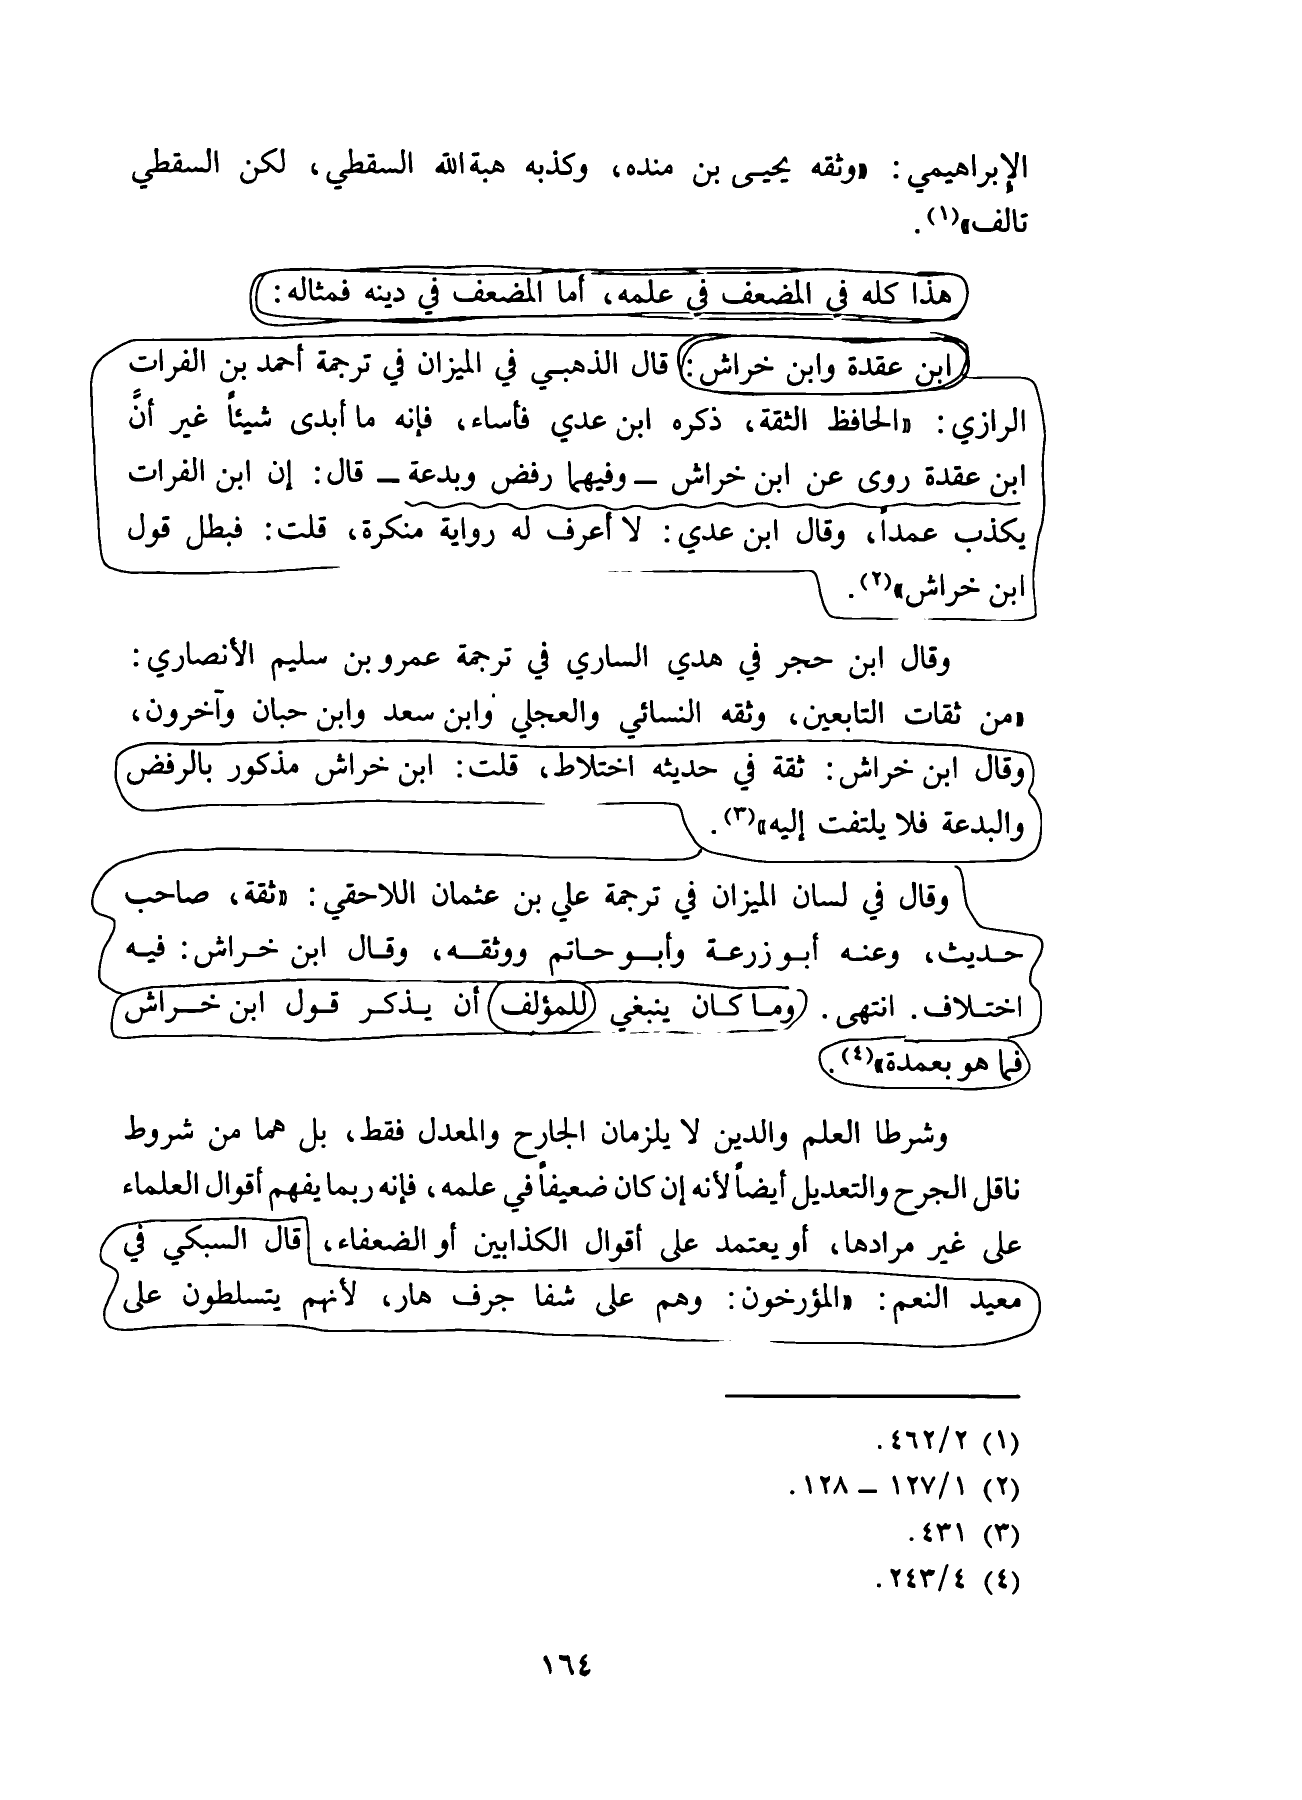 الإبراهيمي: «وثقه يحيى بن منده، وكذبه هبة الله السقطي، لكن السقطي
تالف»(١).
هذا كله في المضعف في علمه، أما المضعف في دينه فمثاله:
ابن عقدة وابن خراش: قال الذهبي في الميزان في ترجمة أحمد بن الفرات
الرازي: «الحافظ الثقة، ذكره ابن عدي فأساء، فإنه ما أبدى شيئاً غير أنَّ
ابن عقدة روى عن ابن خراش – وفيهما رفض وبدعة – قال: إن ابن الفرات
يكذب عمداً، وقال ابن عدي: لا أعرف له رواية منكرة، قلت: فبطل قول
ابن خراش»(٢).
وقال ابن حجر في هدي الساري في ترجمة عمرو بن سليم الأنصاري:
«من ثقات التابعين، وثقه النسائي والعجلي وابن سعد وابن حبان وآخرون،
وقال ابن خراش: ثقة في حديثه اختلاط، قلت: ابن خراش مذكور بالرفض
والبدعة فلا يلتفت إليه»(٣).
وقال في لسان الميزان في ترجمة علي بن عثمان اللاحقي: «ثقة، صاحب
حديث، وعنه أبو زرعة وأبو حاتم ووثقه، وقال ابن خراش: فيه
اختلاف. انتهى. وما كان ينبغي للمؤلف أن يذكر قول ابن خراش
فما هو بعمدة»(٤).
وشرطا العلم والدين لا يلزمان الجارح والمعدل فقط، بل هما من شروط
ناقل الجرح والتعديل أيضاً لأنه إن كان ضعيفاً في علمه، فإنه ربما يفهم أقوال العلماء
على غير مرادها، أو يعتمد على أقوال الكذابين أو الضعفاء، قال السبكي في
معيد النعم: «المؤرخون: وهم على شفا جرف هار، لأنهم يتسلطون على
(١) ٤٦٢/٢.
(٢) ١٢٧/١ – ١٢٨.
(٣) ٤٣١.
(٤) ٢٤٣/٤.
١٦٤